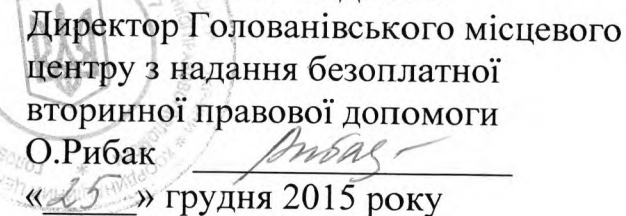 Директор Голованівського місцевого
центру з надання безоплатної
вторинної правової допомоги
О.Рибак
«25» грудня 2015 року